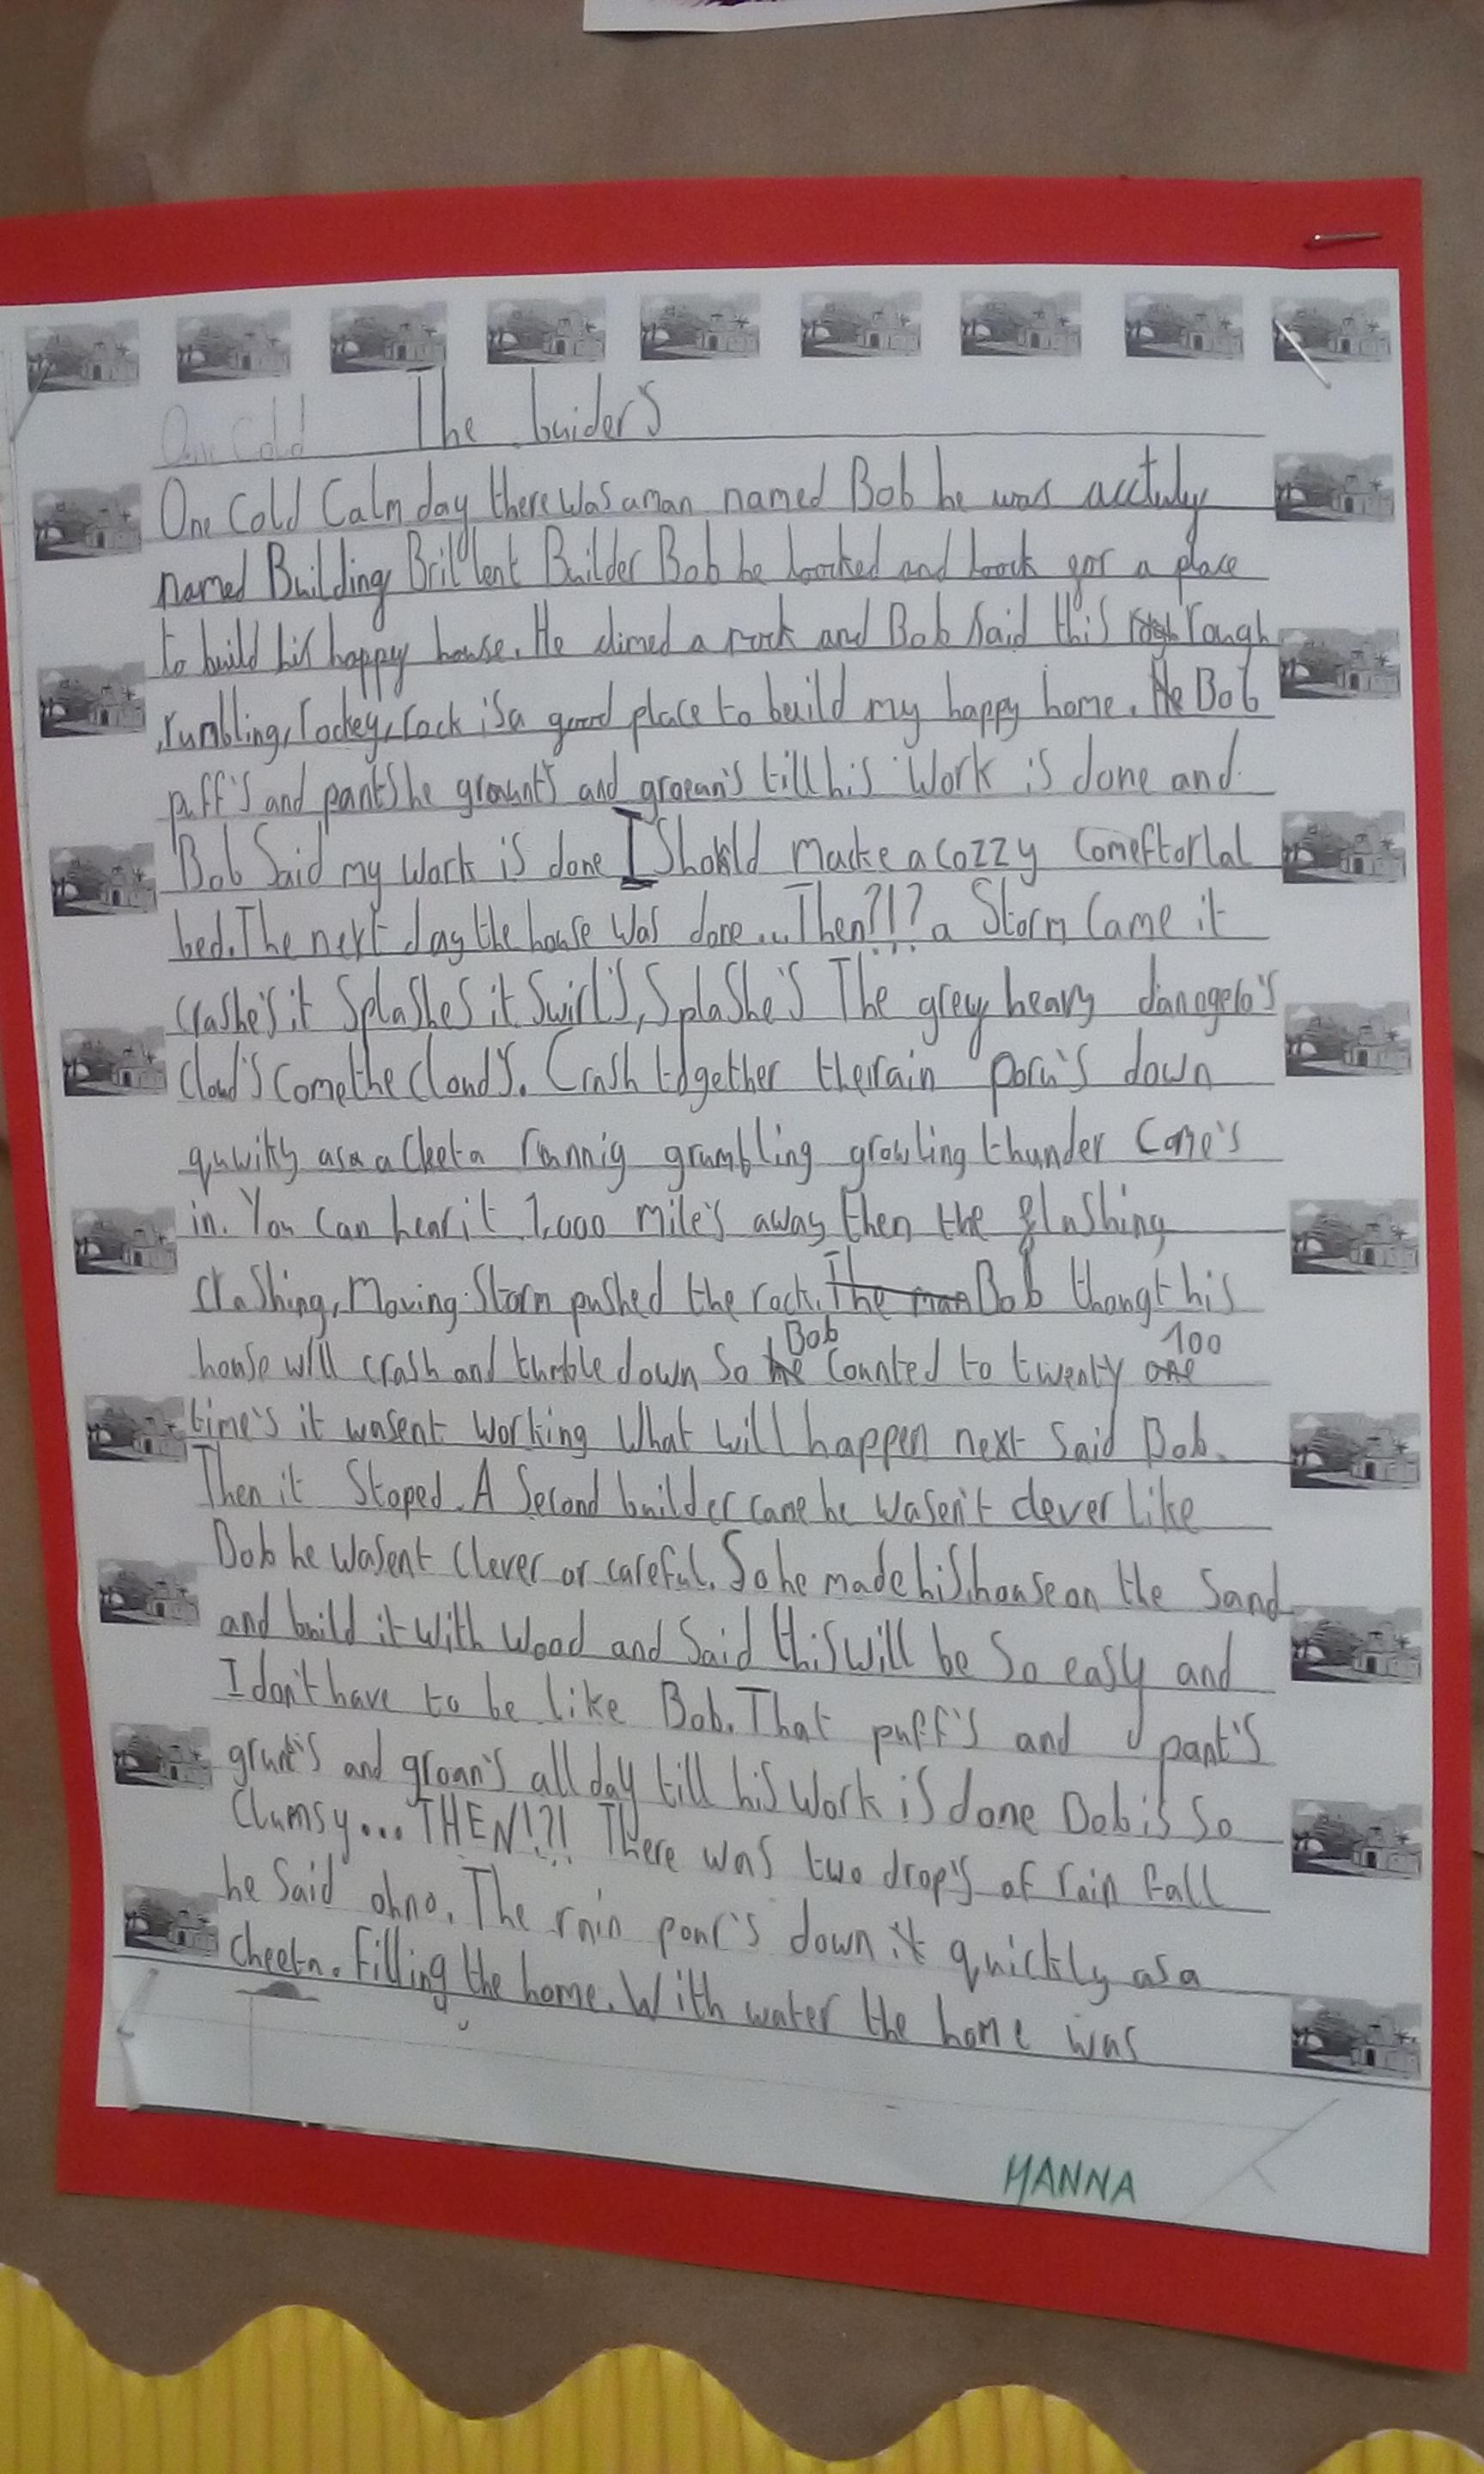 One Cold The buiders
One Cold Calm day there was a man named Bob he was acctuly
named Building Brillent Builder Bob he loocked and loock for a place
to build his happy house. He climed a rock and Bob Said this rough
,rumbling, rockey, rock is a good place to build my happy home. He Bob
puff's and pant's he grount's and groean's till his Work is done and
Bob Said my Work is done I Should macke a cozzy comeftorlal
bed. The next day the house Was done... Then?!? a Storm Came it
crashe's it Splashes it Swirl's, Splashe's The grey heavy danogero's
Cloud's come the Cloud's. Crash together the rain poru's down
quwikly as a a cheeta runnig grumbling growling thunder Come's
in. You can hear it 1,000 mile's away then the flashing
crashing, Moving Storm pushed the rock. The man Bob thougt his
house will crash and tumble down So he Bob Counted to twenty one 100
time's it wasent working What will happen next Said Bob.
Then it Stoped. A Second builder came he wasen't clever like
Bob he wasent Clever or careful. So he made his house on the Sand
and build it with wood and Said this will be So easy and
I don't have to be like Bob. That puff's and pant's
grunt's and groan's all day till his Work is done Bob is So
Clumsy... THEN!?! There was two drop's of rain fall
he Said ohno. The rain pour's down it quickly as a
Cheeta. Filling the home. With water the home was
HANNA